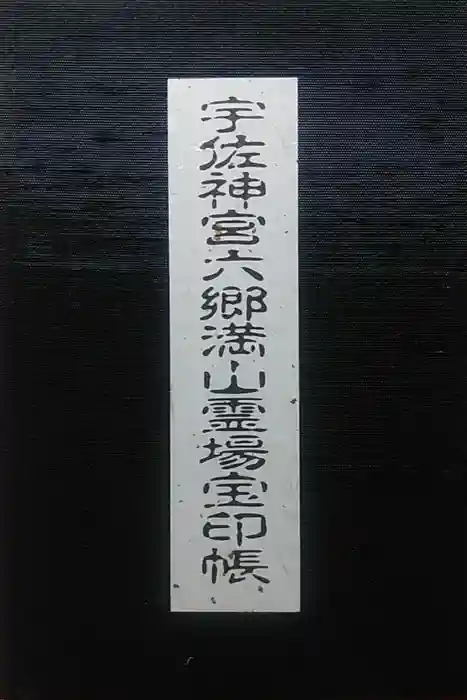 宇佐神宮六郷満山霊場宝印帳